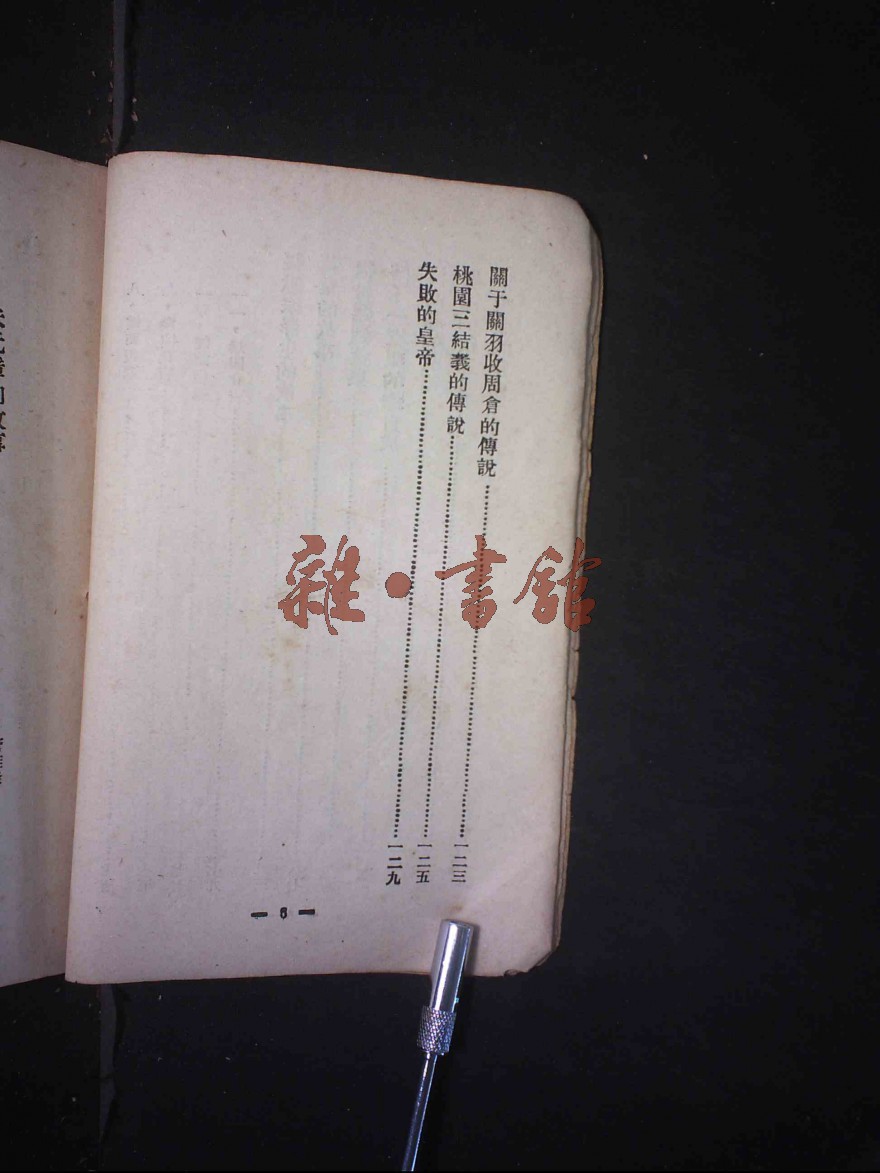 關于關羽收周倉的傳說……一二三
桃園三結義的傳說……一二五
失敗的皇帝……一二九
— 6 —
雜·書館